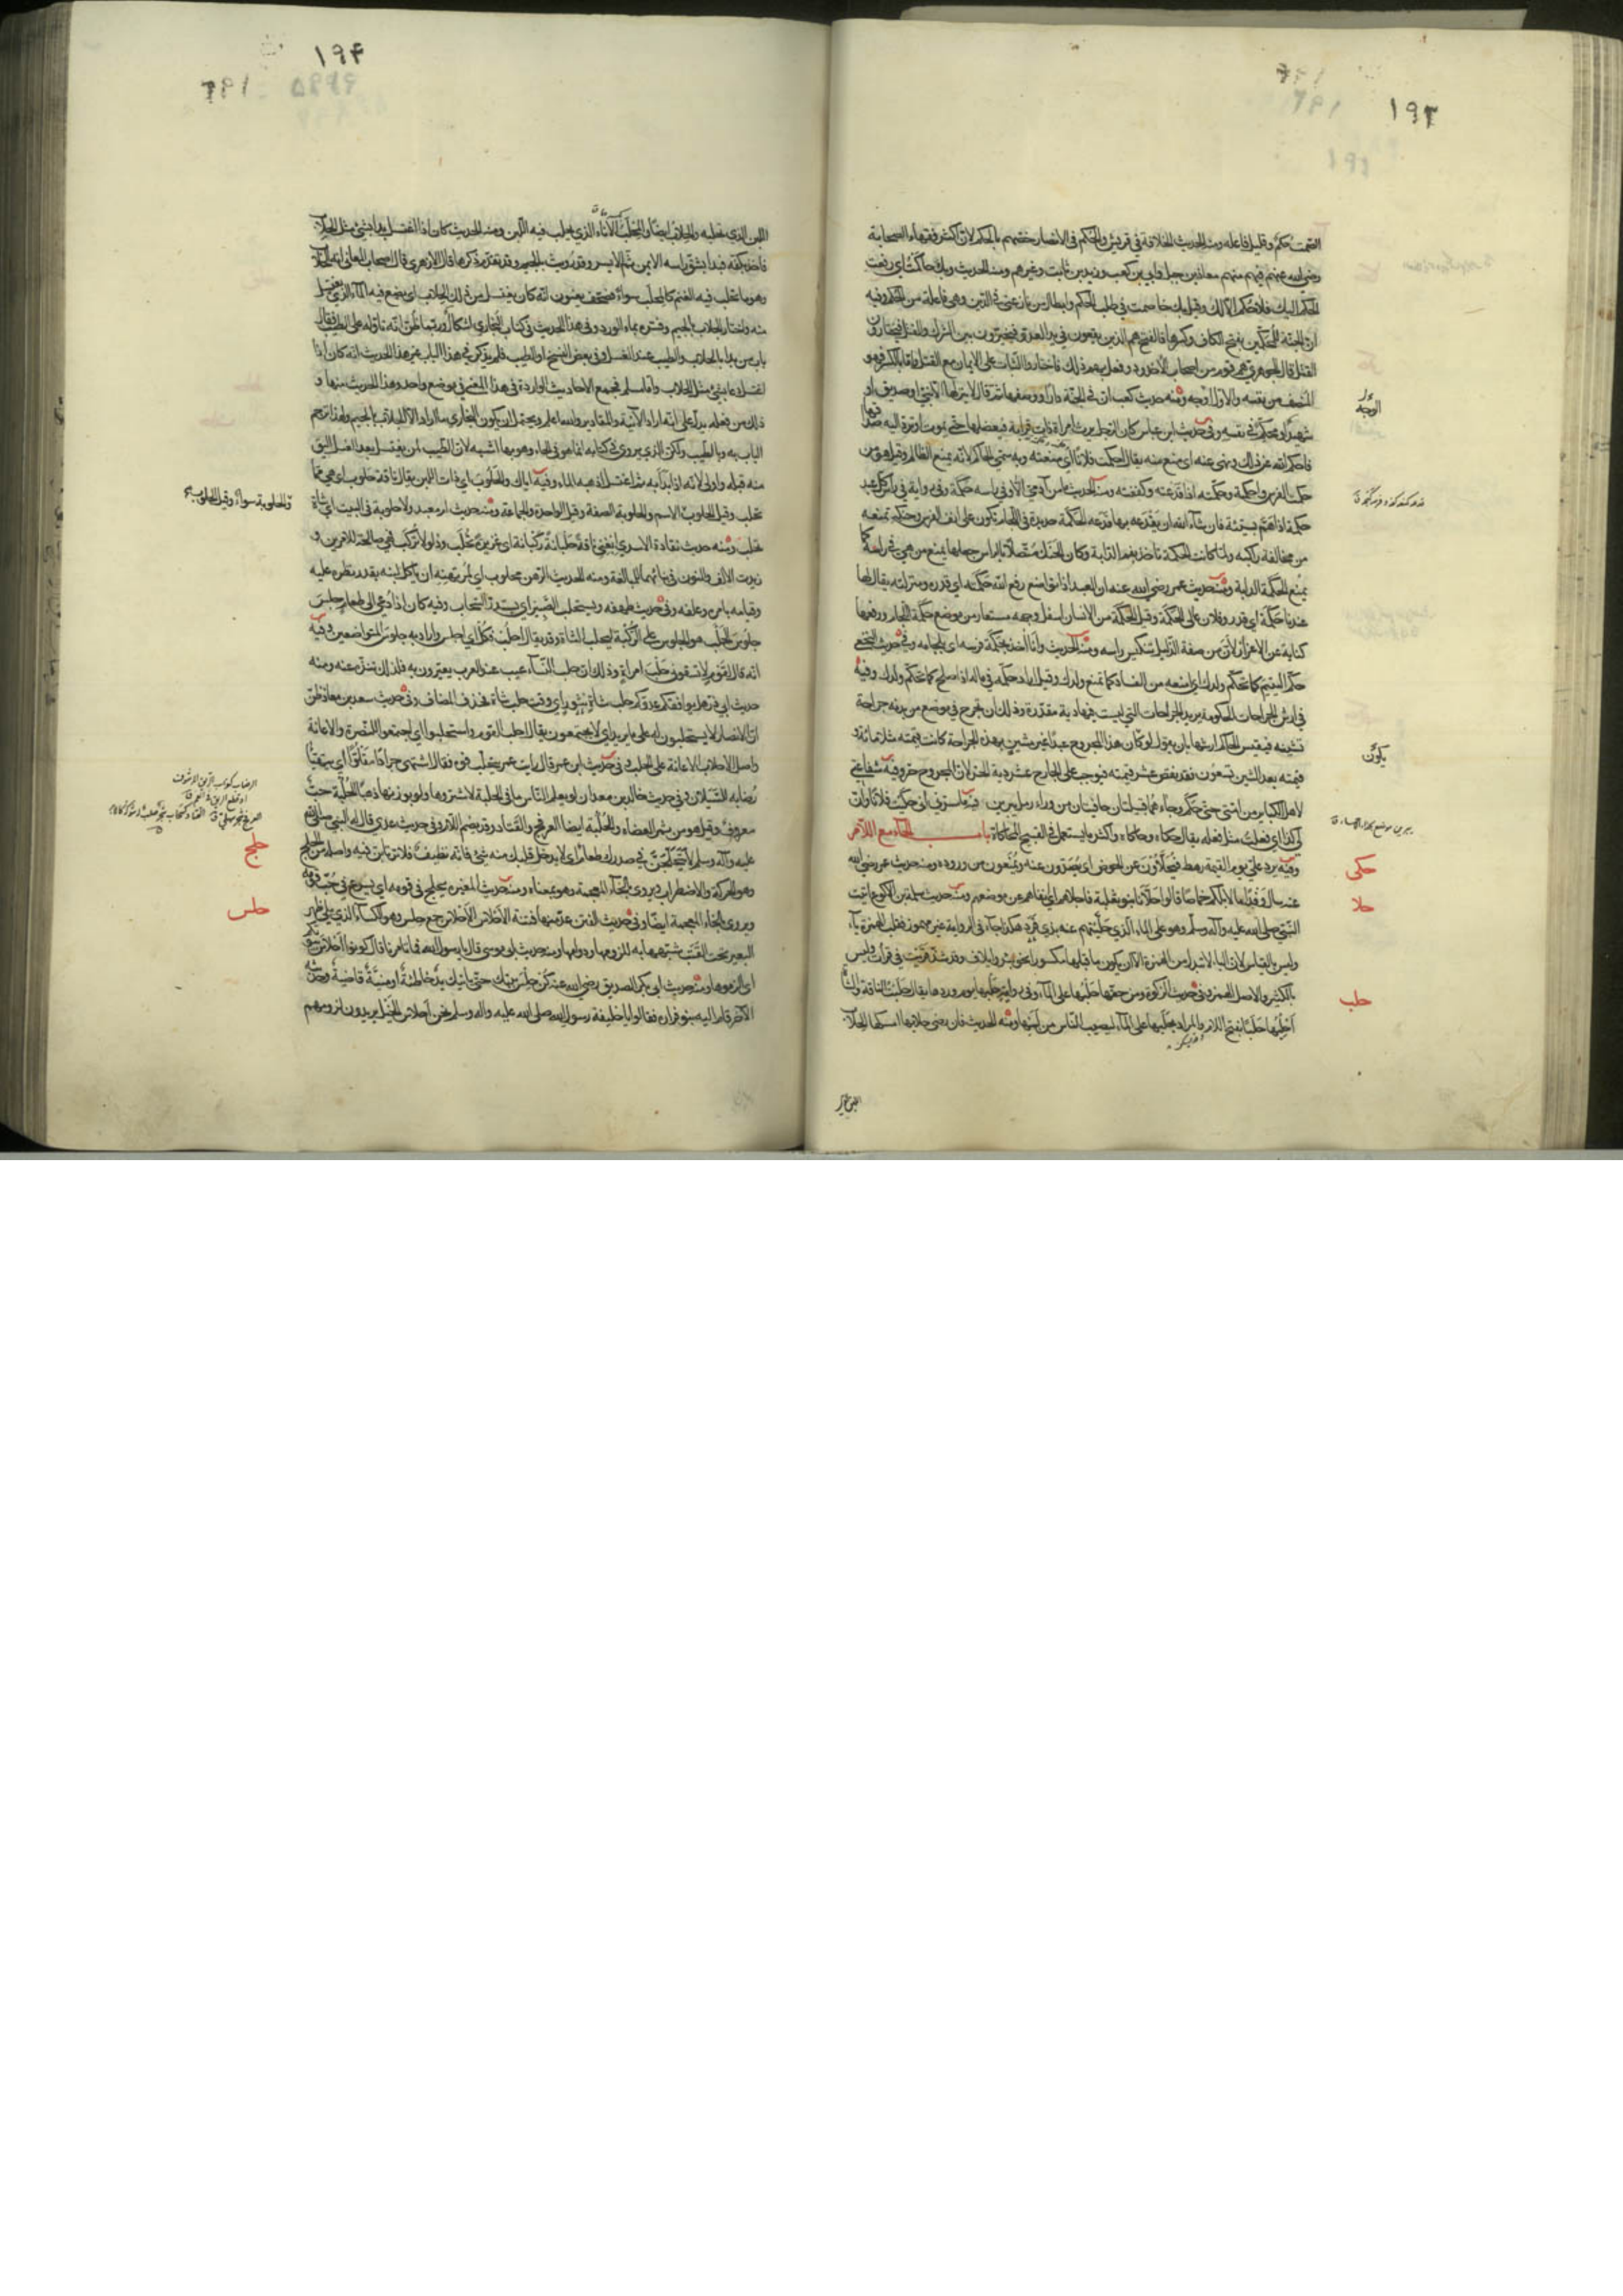 ١٩٣
الصمت حكم وقليل فاعله ومنه الحديث الخلافة في قريش والحكم في الانصار خصهم بالحكم لان اكثر فقهاء الصحابة
رضي الله عنهم فيهم منهم معاذ بن جبل وابي بن كعب وزيد بن ثابت وغيرهم ومنه الحديث وبك حاكمت اي رفعت
الحكم اليك فلا حكم الا لك وقيل بك خاصمت في طلب الحكم وابطال من نازعني في الدين وهي مفاعلة من الحكم وفيه
ان الجنة للمحكمين بفتح الكاف وكسرها فالفتح هم الذين يقعون في يد العدو فيخيرون بين الشرك والقتل فيختارون
القتل قال الجوهري هم قوم من اصحاب الأخدود فعل بهم ذلك فاختاروا الثبات على الايمان مع القتل واما بالكسر فهو
المنصف من نفسه والاول الوجه ومنه حديث كعب ان في الجنة دارا ووصفها ثم قال لا ينزلها الا نبي او صديق او
شهيد او محكم في نفسه وفي حديث ابن عباس كان الرجل يرث امراة ذات قرابة فيعضلها حتى تموت او ترد اليه صداقها
فاحكم الله عن ذلك ونهى عنه اي منع منه يقال احكمت فلانا اي منعته وبه سمي الحاكم لانه يمنع الظالم وقيل هو من
حكمت الفرس واحكمته وحكمته اذا قدعته وكففته ومنه الحديث ما من آدمي الا وفي راسه حكمة وفي رواية في راس كل عبد
حكمة اذا هم بسيئة فان شاء الله ان يقدعه بها قدعه الحكمة حديدة في اللجام تكون على انف الفرس وحنكه تمنعه
من مخالفة راكبه ولما كانت الحكمة تاخذ بفم الدابة وكان الحنك متصلا بالراس جعلها تمنع من هي في راسه كما
تمنع الحكمة الدابة ومنه حديث عمر رضي الله عنه ان العبد اذا تواضع رفع الله حكمته اي قدره ومنزلته يقال له
عندنا حكمة اي قدر وفلان عالي الحكمة وقيل الحكمة من الانسان اسفل وجهه مستعار من موضع حكمة اللجام ورفعها
كناية عن الاعزاز لان من صفة الذليل تنكيس راسه ومنه الحديث وانا آخذ بحكمة فرسه اي بلجامه وفي حديث النخعي
حكم اليتيم كما تحكم ولدك اي امنعه من الفساد كما تمنع ولدك وقيل اراد حكمه في ماله اذا صلح كما تحكم ولدك وفيه
في ارش الجراحات الحكومة يريد الجراحات التي ليست فيها دية مقدرة وذلك ان يجرح في موضع من بدنه جراحة
تشينه فيقيس الحاكم ارشها بان يقول لو كان هذا المجروح عبدا غير مشين بهذه الجراحة كانت قيمته مثلا مائة و
قيمته بعد الشين تسعون فقد نقص عشر قيمته فيوجب على الجارح عشر دية الحر لان المجروح حر وفيه شفاعتي
لاهل الكبائر من امتي حتى حكم وحاء هما قبيلتان جافيتان من وراء رمل يبرين فيه ما سرني اني حكيت فلانا وان
لي كذا اي فعلت مثل فعله يقال حكاه وحاكاه واكثر ما يستعمل في القبيح المحاكاة باب الحاء مع اللام
وفيه يرد علي يوم القيمة رهط فيحلأون عن الحوض اي يصدون عنه ويمنعون من وروده ومنه حديث عمر رضي الله
عنه سال وفدا ما لابلكم خماصا قالوا حلأنا بنو ثعلبة فاجلاهم اي نفاهم عن موضعهم ومنه حديث سلمة بن الاكوع اتيت
النبي صلى الله عليه وآله وسلم وهو على الماء الذي حليتهم عنه بذي قرد هكذا جاء في الرواية غير مهموز فقلب الهمزة ياء
وليس بالقياس لان الياء لا تبدل من الهمزة الا ان يكون ما قبلها مكسورا نحو بئر وايلاف وقد شذ قريت في قرأت وليس
بالكثير والاصل الهمز وفي حديث الزكوة ومن حقها حلبها على الماء وفي رواية حلبها يوم وردها يقال حلبت الناقة والشاة
احلبها حلبا بفتح اللام والمراد بحلبها على الماء ليصيب الناس من لبنها ومنه الحديث فان رضي حلابها امسكها الحلاب
الوجه
يكون
حكى
حلا
حلب
١٩۴
اللبن الذي تحلبه والحلاب ايضا والمحلب الاناء الذي يحلب فيه اللبن ومنه الحديث كان اذا اغتسل بدا بشيء مثل الحلاب
فاخذ بكفه فبدا بشق راسه الايمن ثم الايسر وقد رويت بالجيم وقد تقدم ذكرها قال الازهري قال اصحاب المعاني انه الحلاب
وهو ما تحلب فيه الغنم كالمحلب سواء فصحف يعنون انه كان يغتسل من ذلك الحلاب اي يضع فيه الماء الذي يغتسل
منه واختار الجلاب بالجيم وفسره بماء الورد وفي هذا الحديث في كتاب البخاري اشكال وربما ظن انه تاوله على الطيب فقال
باب من بدا بالحلاب والطيب عند الغسل وفي بعض النسخ او الطيب فلم يذكر في هذا الباب غير هذا الحديث انه كان اذا
اغتسل دعا بشيء مثل الحلاب واما مسلم فجمع الاحاديث الواردة في هذا المعنى في موضع واحد وهذا الحديث منها و
ذلك من فعله يدل على انه اراد الآنية والمقادير والله اعلم ويحتمل ان يكون البخاري ما اراد الا الجلاب بالجيم ولهذا ترجم
الباب به وبالطيب ولكن الذي يروى في كتابه انما هو في الحاء وهو بها اشبه لان الطيب لمن يغتسل بعد الغسل اليق
منه قبله واولى لانه اذا بدا به ثم اغتسل اذهبه الماء وفيه اياك والحلوب اي ذات اللبن يقال ناقة حلوب اي هي مما
تحلب وقيل الحلوب الاسم والحلوبة الصفة وقيل الواحدة والجماعة ومنه حديث ام معبد ولا حلوبة في البيت اي شاة
تحلب ومنه حديث نقادة الاسدي ابغني ناقة حلبانة ركبانة اي غزيرة تحلب وذلولا تركب فهي صالحة للامرين و
زيدت الالف والنون في بنائهما للمبالغة ومنه الحديث الرهن محلوب اي لمرتهنه ان ياكل لبنه بقدر نظره عليه
وقيامه بامره وعلفه وفي حديث طهفة ونستحلب الصبير اي نستدر السحاب وفيه كان اذا دعي الى طعام جلس
جلوس الحلب هو الجلوس على الركبة ليحلب الشاة وقد يقال احلب فكل اي اجلس واراد به جلوس المتواضعين وفيه
انه قال لقوم لا تسقوني حلب امراة وذلك ان حلب النساء عيب عند العرب يعيرون به فلذلك تنزه عنه ومنه
حديث ابي ذر هل يوافقكم عدوكم حلب شاة نثور اي وقت حلب شاة فحذف المضاف وفي حديث سعد بن معاذ ظن
ان الانصار لا يستحلبون له على ما يريد اي لا يجتمعون يقال احلب القوم واستحلبوا اي اجتمعوا للنصرة والاعانة
واصل الاحلاب الاعانة على الحلب وفي حديث ابن عمر قال رايت عمر يتحلب فوه فقال اشتهي جرادا مقلوا اي يتهيأ
رضابه للسيلان وفي حديث خالد بن معدان لو يعلم الناس ما في الحلبة لاشتروها ولو بوزنها ذهبا الحلبة حب
معروف وقيل هو من ثمر العضاه والحلبة ايضا العرفج والقتاد وقد يضم اللام وفي حديث عدي قال له النبي صلى الله
عليه وآله وسلم لا يتحلجن في صدرك طعام اي لا يدخل قلبك منه شيء فانه نظيف فلا ترتابن فيه واصله من الحلج
وهو الحركة والاضطراب ويروى بالخاء المعجمة وهو بمعناه ومنه حديث المغيرة يحلج في قومه اي يسرع في حب قومه
ويروى بالخاء المعجمة ايضا وفي حديث الفتن عد منها فتنة الاحلاس الاحلاس جمع حلس وهو الكساء الذي يلي ظهر
البعير تحت القتب شبهها به للزومها ودوامها ومنه حديث ابي موسى قال يا رسول الله فما تامرنا قال كونوا احلاس بيوتكم
اي الزموها ومنه حديث ابي بكر الصديق رضي الله عنه كن حلس بيتك حتى ياتيك يد خاطئة او منية قاضية وحديثه
الآخر قام اليه بنو فزارة فقالوا يا خليفة رسول الله صلى الله عليه وآله وسلم نحن احلاس الخيل يريدون لزومهم
والحلوبة سواء وقيل الحلوب
حلج
حلس